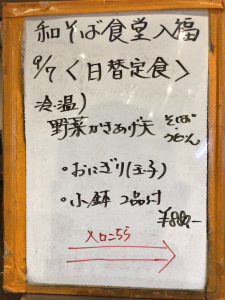 和そば食堂入福
9/7〈日替定食〉
冷温)
野菜かきあげ天 そば・うどん
・おにぎり(玉子)
・小鉢 2品付
¥880-
入口こちら